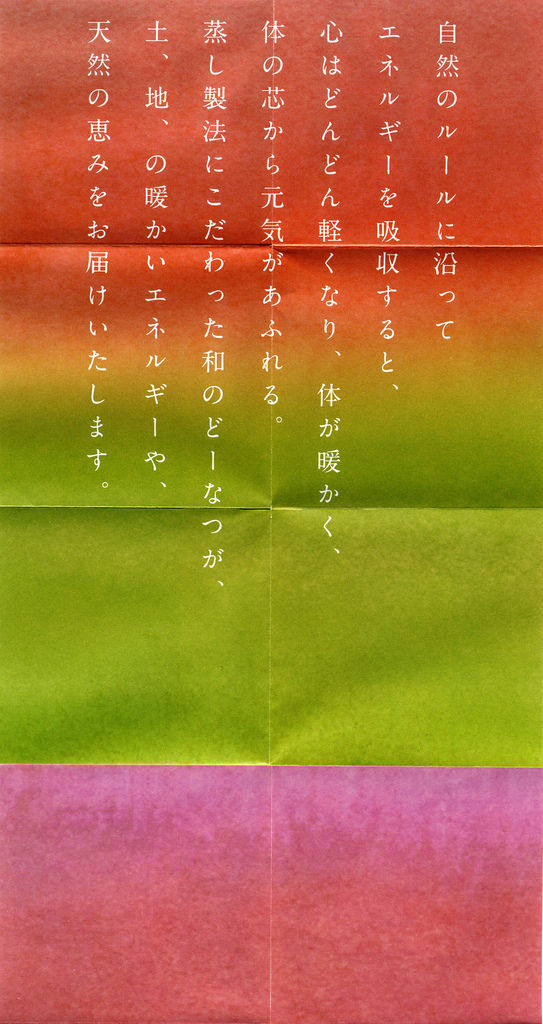 自然のルールに沿って
エネルギーを吸収すると、
心はどんどん軽くなり、体が暖かく、
体の芯から元気があふれる。
蒸し製法にこだわった和のどーなつが、
土、地、の暖かいエネルギーや、
天然の恵みをお届けいたします。